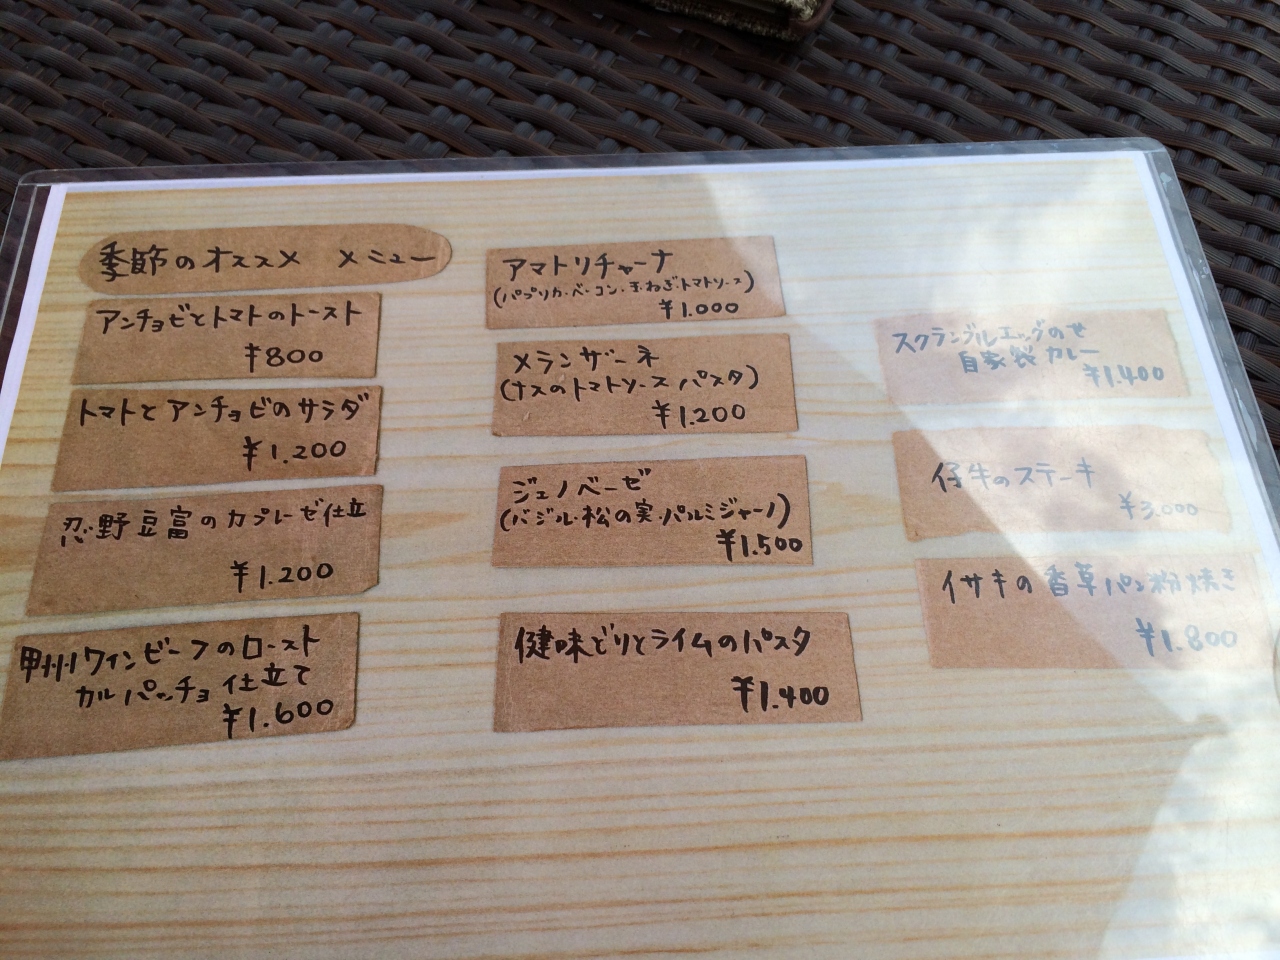 季節のオススメ メニュー
アンチョビとトマトのトースト
¥800
トマトとアンチョビのサラダ
¥1.200
忍野豆富のカプレーゼ仕立
¥1.200
甲州ワインビーフのロースト
カルパッチョ仕立て
¥1.600
アマトリチャーナ
(パプリカ・ベーコン・玉ねぎ・トマトソース)
¥1.000
メランザーネ
(ナスのトマトソース パスタ)
¥1.200
ジェノベーゼ
(バジル・松の実・パルミジャーノ)
¥1.500
健味どりとライムのパスタ
¥1.400
スクランブルエッグのせ
自家製カレー
¥1.400
仔牛のステーキ
¥3.000
イサキの香草パン粉焼き
¥1.800